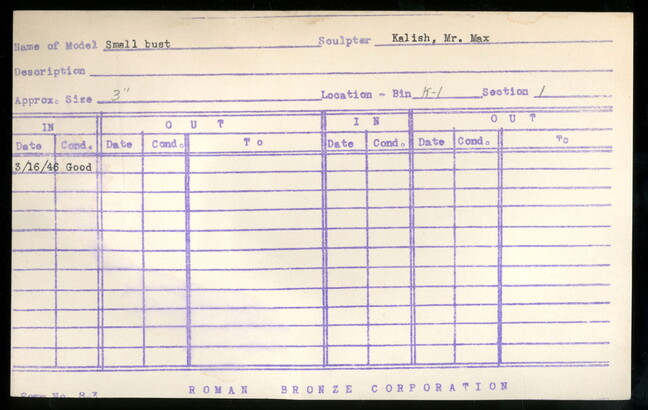 Name of Model Small bust Sculptor Kalish, Mr. Max
Description
Approx. Size 3" Location - Bin K-1 Section 1
IN OUT IN OUT
Date Cond. Date Cond. To Date Cond. Date Cond. To
3/16/46 Good
Form No. 83
ROMAN BRONZE CORPORATION